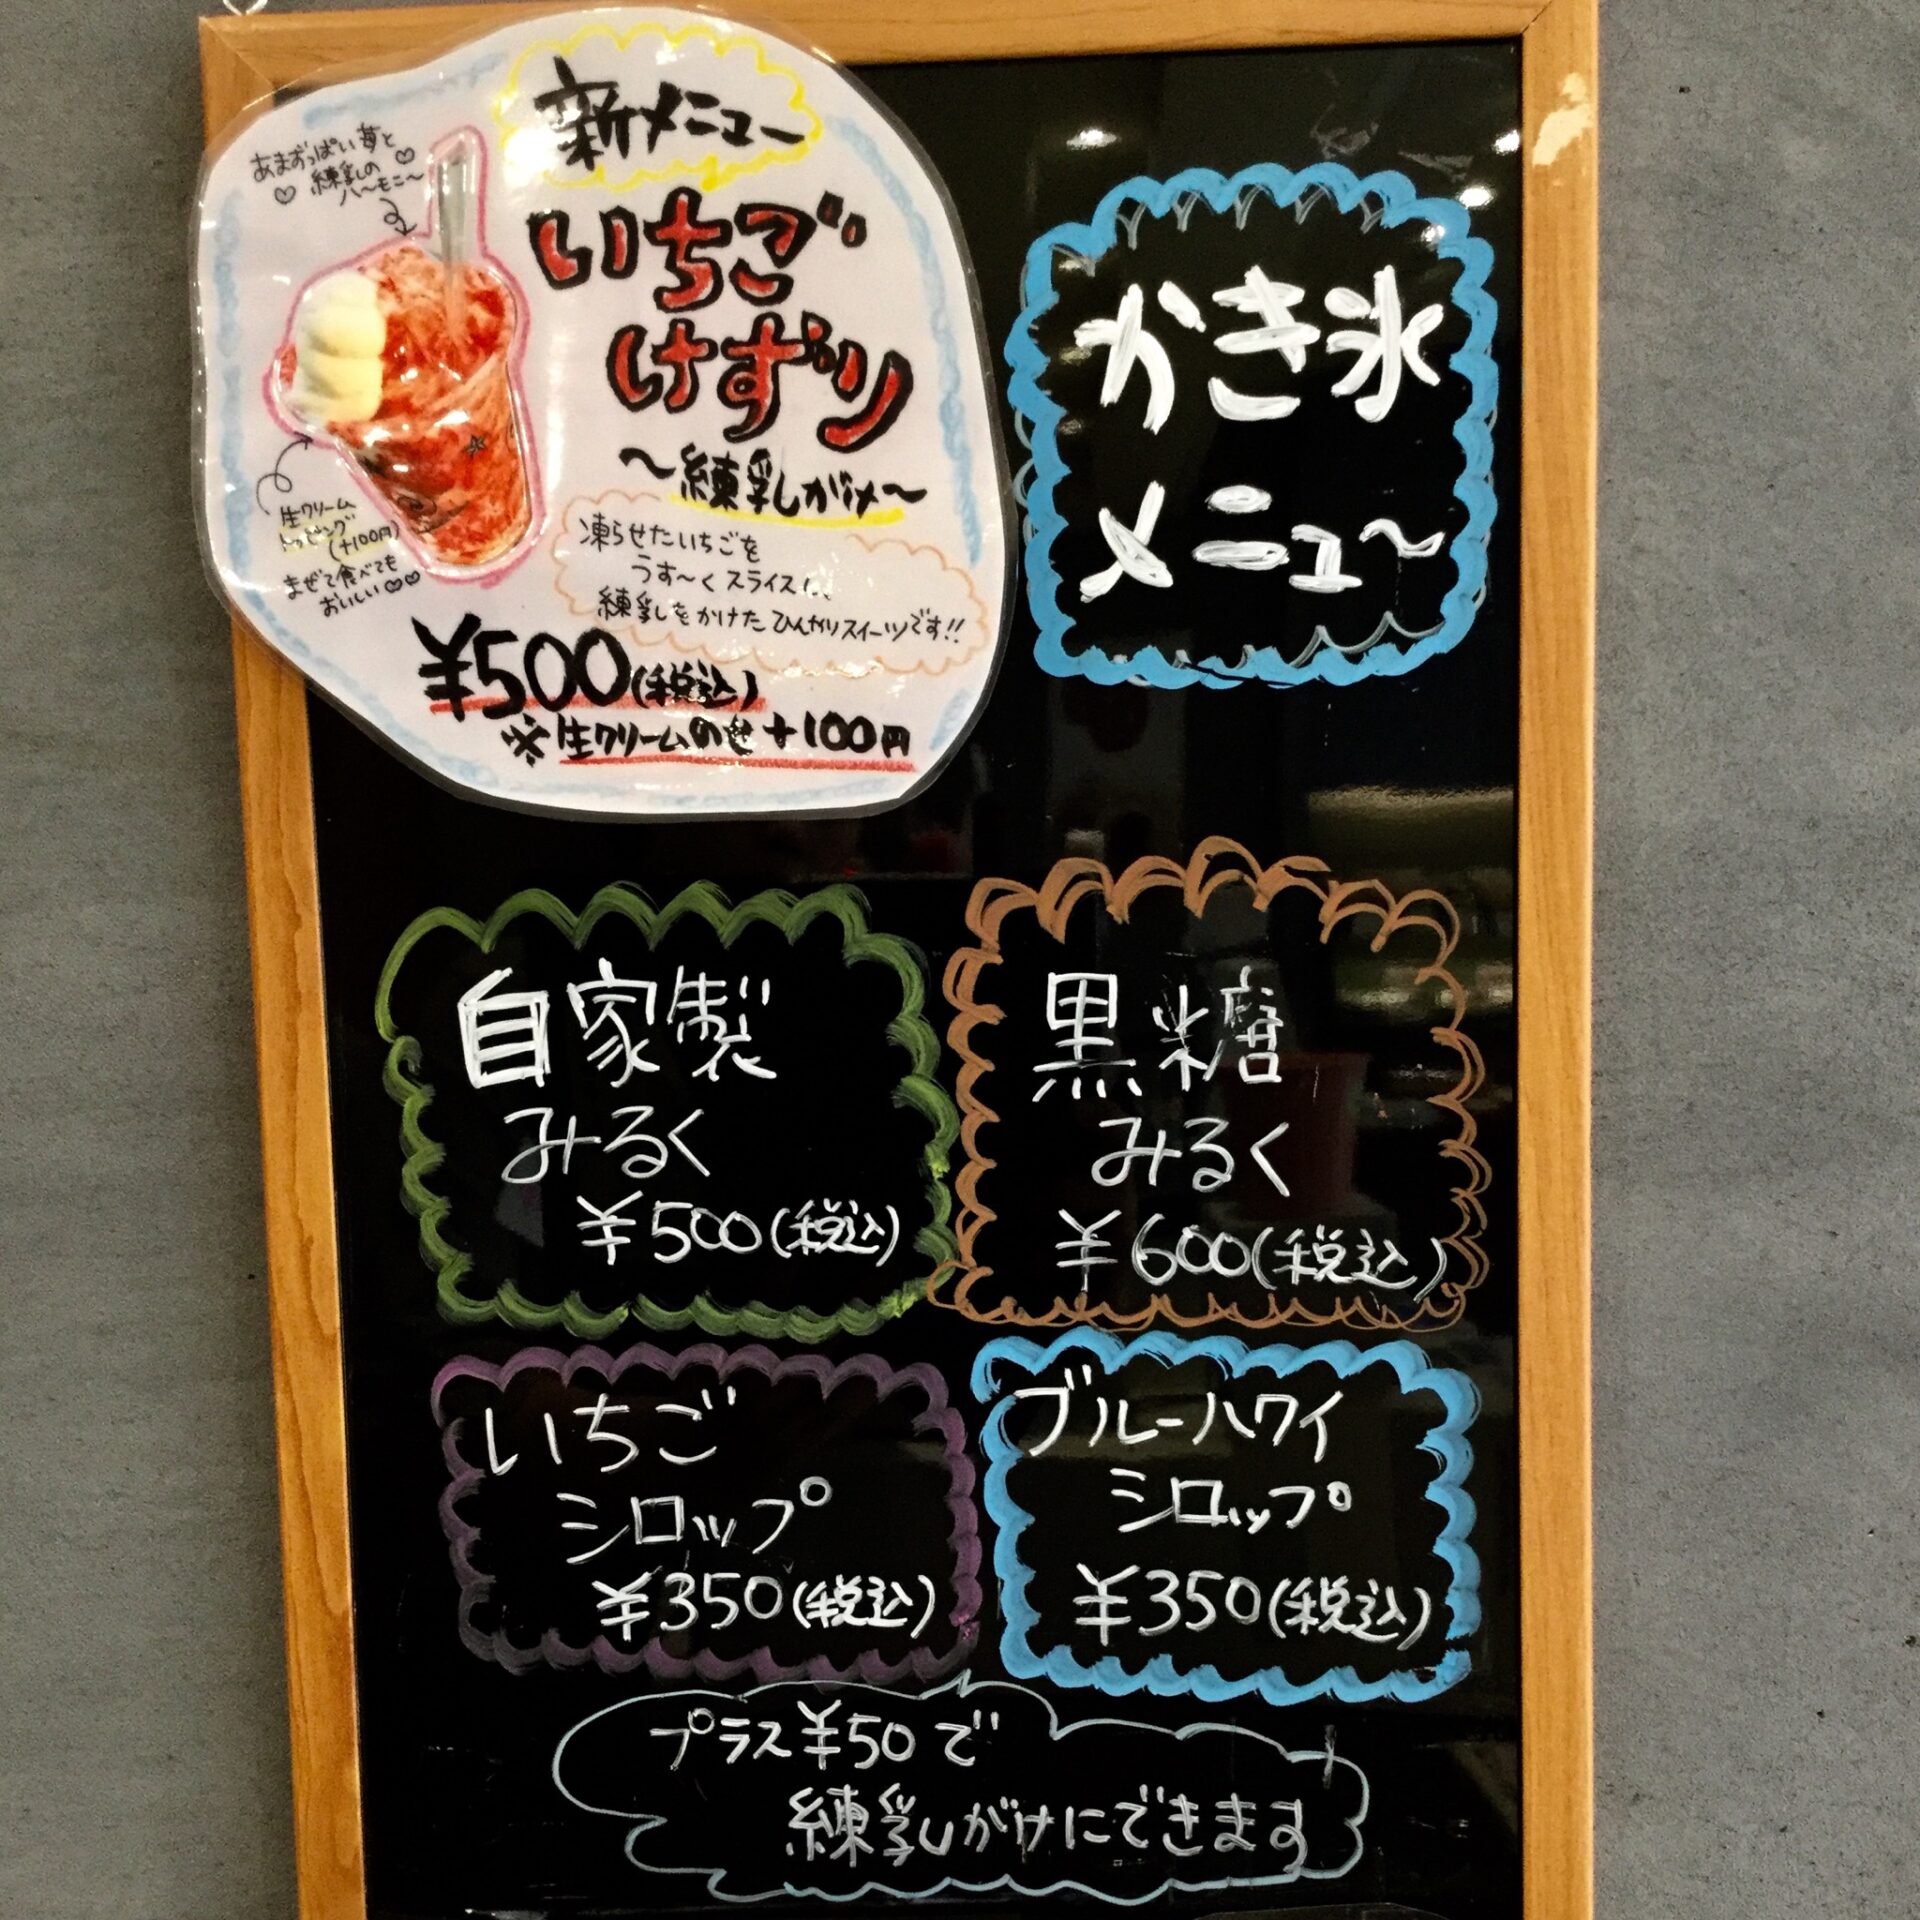 新メニュー
あまずっぱい苺と
練乳の
ハ〜モニ〜
いちご
けずり
〜練乳がけ〜
生クリーム
トッピング
(+100円)
まぜて食べても
おいしい
凍らせたいちごを
うす〜くスライスし、
練乳をかけたひんやりスイーツです!!
¥500(税込)
※生クリームのせ+100円
かき氷
メニュ〜
自家製
みるく
¥500(税込)
黒糖
みるく
¥600(税込)
いちご
シロップ
¥350(税込)
ブルーハワイ
シロップ
¥350(税込)
プラス¥50で
練乳がけにできます